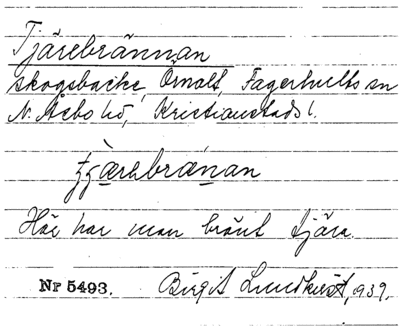 Tjärebrännan
skogsbacke, Örnalt, Fagerhults sn
N. Åsbo hd, Kristianstads l.
Här har man bränt tjära.
Nr 5493. Birgit Lundkvist, 1939.